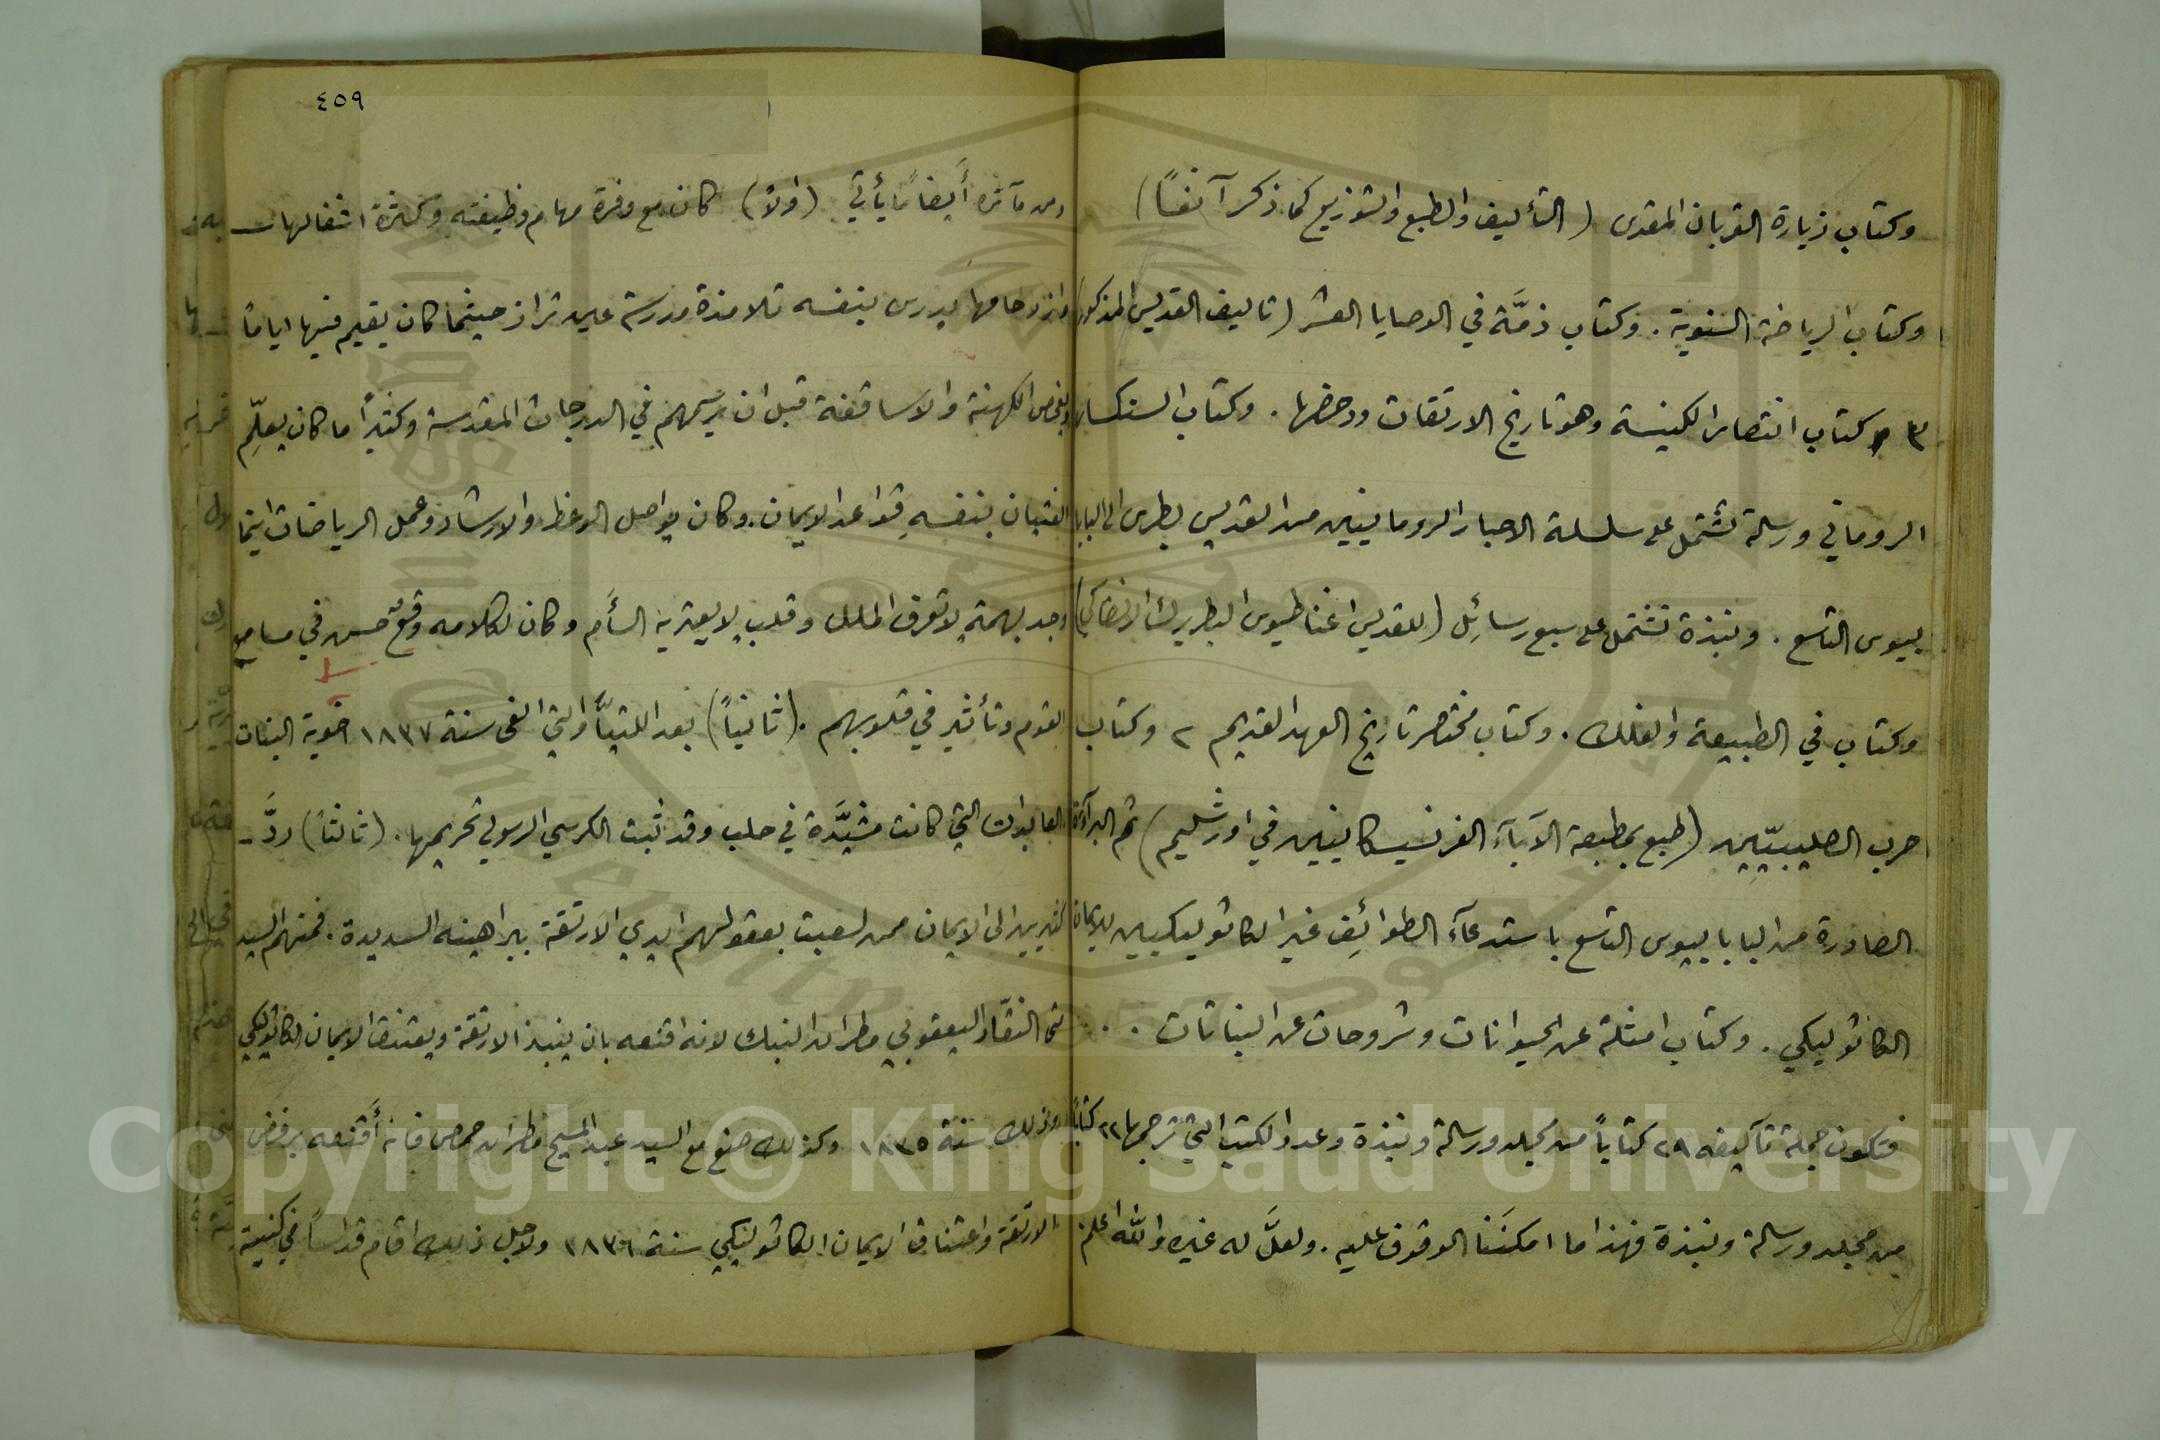 وكتاب زيارة القربان المقدس (التأليف والطبع والتوزيع كما ذكر آنفاً)
وكتاب الرياضة السنوية. وكتاب ذمَّة في الوصايا العشر (تاليف القديس المذكور)
٣ وكتاب انتصار الكنيسة وهو تاريخ الارتقات ودحضها. وكتاب السنكسار
الروماني ورسالة تشتمل على سلسلة الاحبار الرومانيين من القديس بطرس الى البابا
بيوس التاسع. ونبذة تشتمل على سبع رسائل (للقديس اغناطيوس البطريرك الانطاكي)
وكتاب في الطبيعة والفلك. وكتاب مختصر تاريخ العهد القديم ٢ وكتاب
حرب الصليبيّين (طبع بمطبعة الآبآء الفرنسيسكانيين في اورشليم) ثم البرآءة
الصادرة من البابا بيوس التاسع باستدعآء الطوائف غير الكاثوليكيين للايمان
الكاثوليكي. وكتاب امثلة عن الحيوانات وشروحات عن النباتات . .
فتكون جملة تآليفه ٢٩ كتاباً من مجلد ورسالة ونبذة وعدد الكتب التي ترجمها ٢٢ كتاباً
من مجلد ورسالة ونبذة فهذا ما امكنَنا الوقوف عليه. ولعلَّ له غيره والله اعلم
٤٥٩
ومن مآثره أيضاً ما يأتي (اولاً) كان مع وفرة مهام وظيفته وكثرة اشغالها
وازدحامها يدرس بنفسه تلامذة مدرسة عين تراز حيثما كان يقيم فيها اياماً
ويفحص الكهنة والاساقفة قبل ان يرسمهم في الدرجات المقدسة وكثيراً ما كان يعلّم
الفتيان بنفسه قواعد الايمان. وكان يواصل الوعظ والارشاد وعمل الرياضات اينما
وجد بهمةٍ لا تعرف الملل وقلبٍ لا يعتريه السأم وكان لكلامه وقعٌ حسن في مسامع
القوم وتأثير في قلوبهم. (ثانياً) بعد اللتيَّا والتي الغى سنة ١٨٣٧ اخوية البنات
العابدات التي كانت مشيَّدة في حلب وقد ثبت الكرسي الرسولي تحريمها. (ثالثاً) ردَّ
كثيرين الى الايمان ممن لعبت بعقولهم ايدي الارتقة ببراهينه السديدة. فمنهم السيد
متى النقّار اليعقوبي مطران النبك لانه اقنعه بان ينبذ الارتقة ويعتنق الايمان الكاثوليكي
وذلك سنة ١٨٣٥ وكذلك صنع مع السيد عبد المسيح مطران حمص فانه أقنعه برفض
الارتقة واعتناق الايمان الكاثوليكي سنة ١٨٣٦ ولاجل ذلك اقام قداساً في كنيسة
Copyright © King Saud University